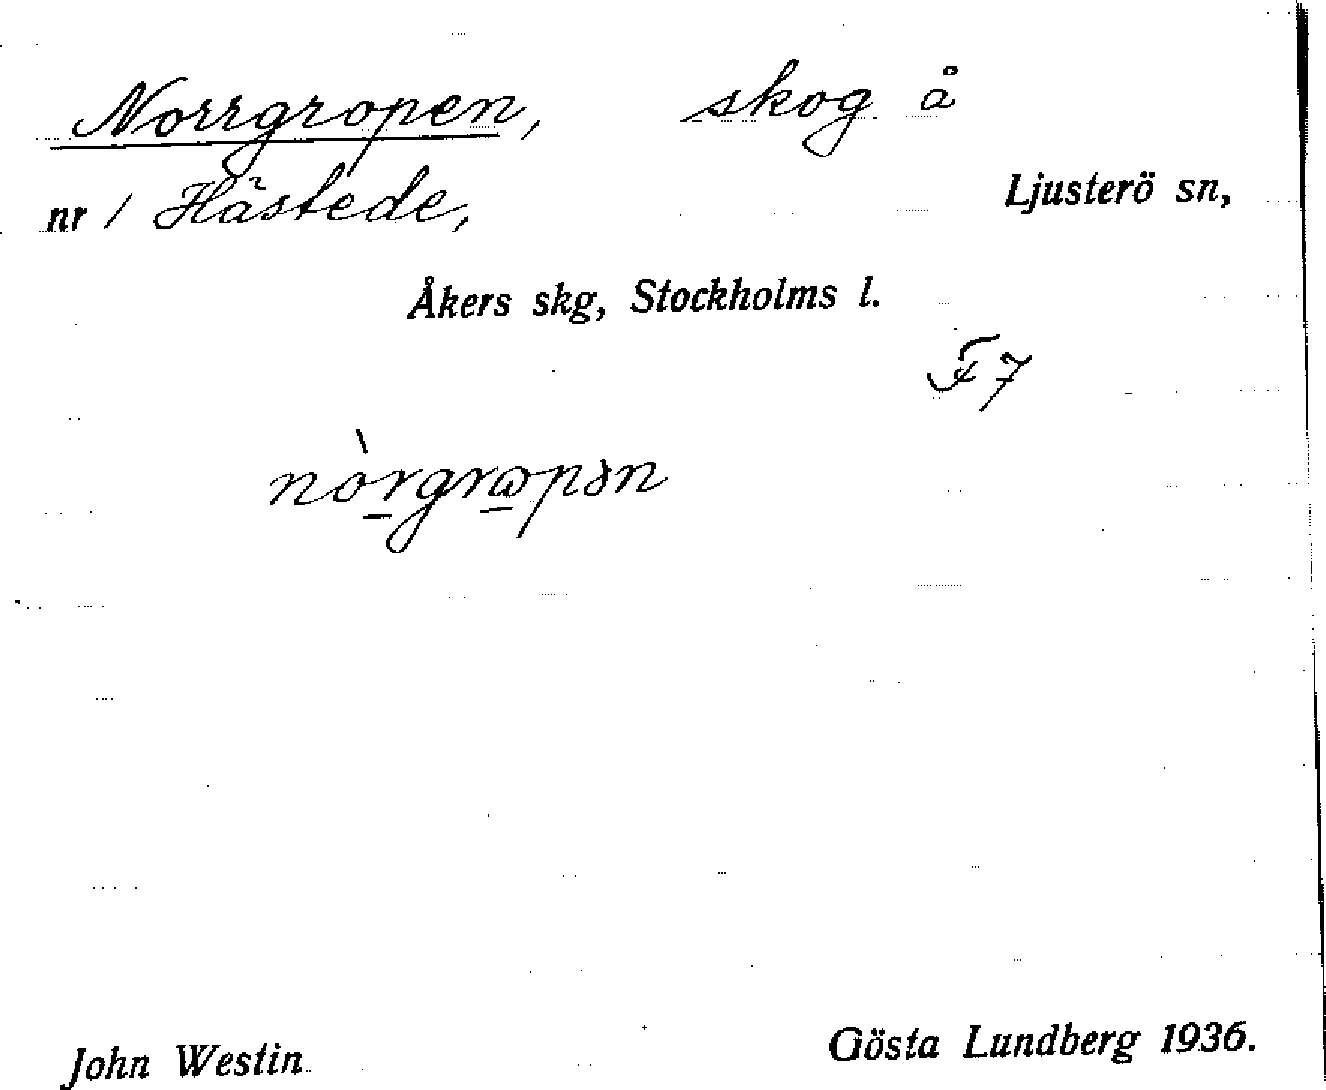 Norrgropen, skog å
nr 1 Hästede, Ljusterö sn,
Åkers skg, Stockholms l.
F7
nòrgrωpən
John Westin
Gösta Lundberg 1936.